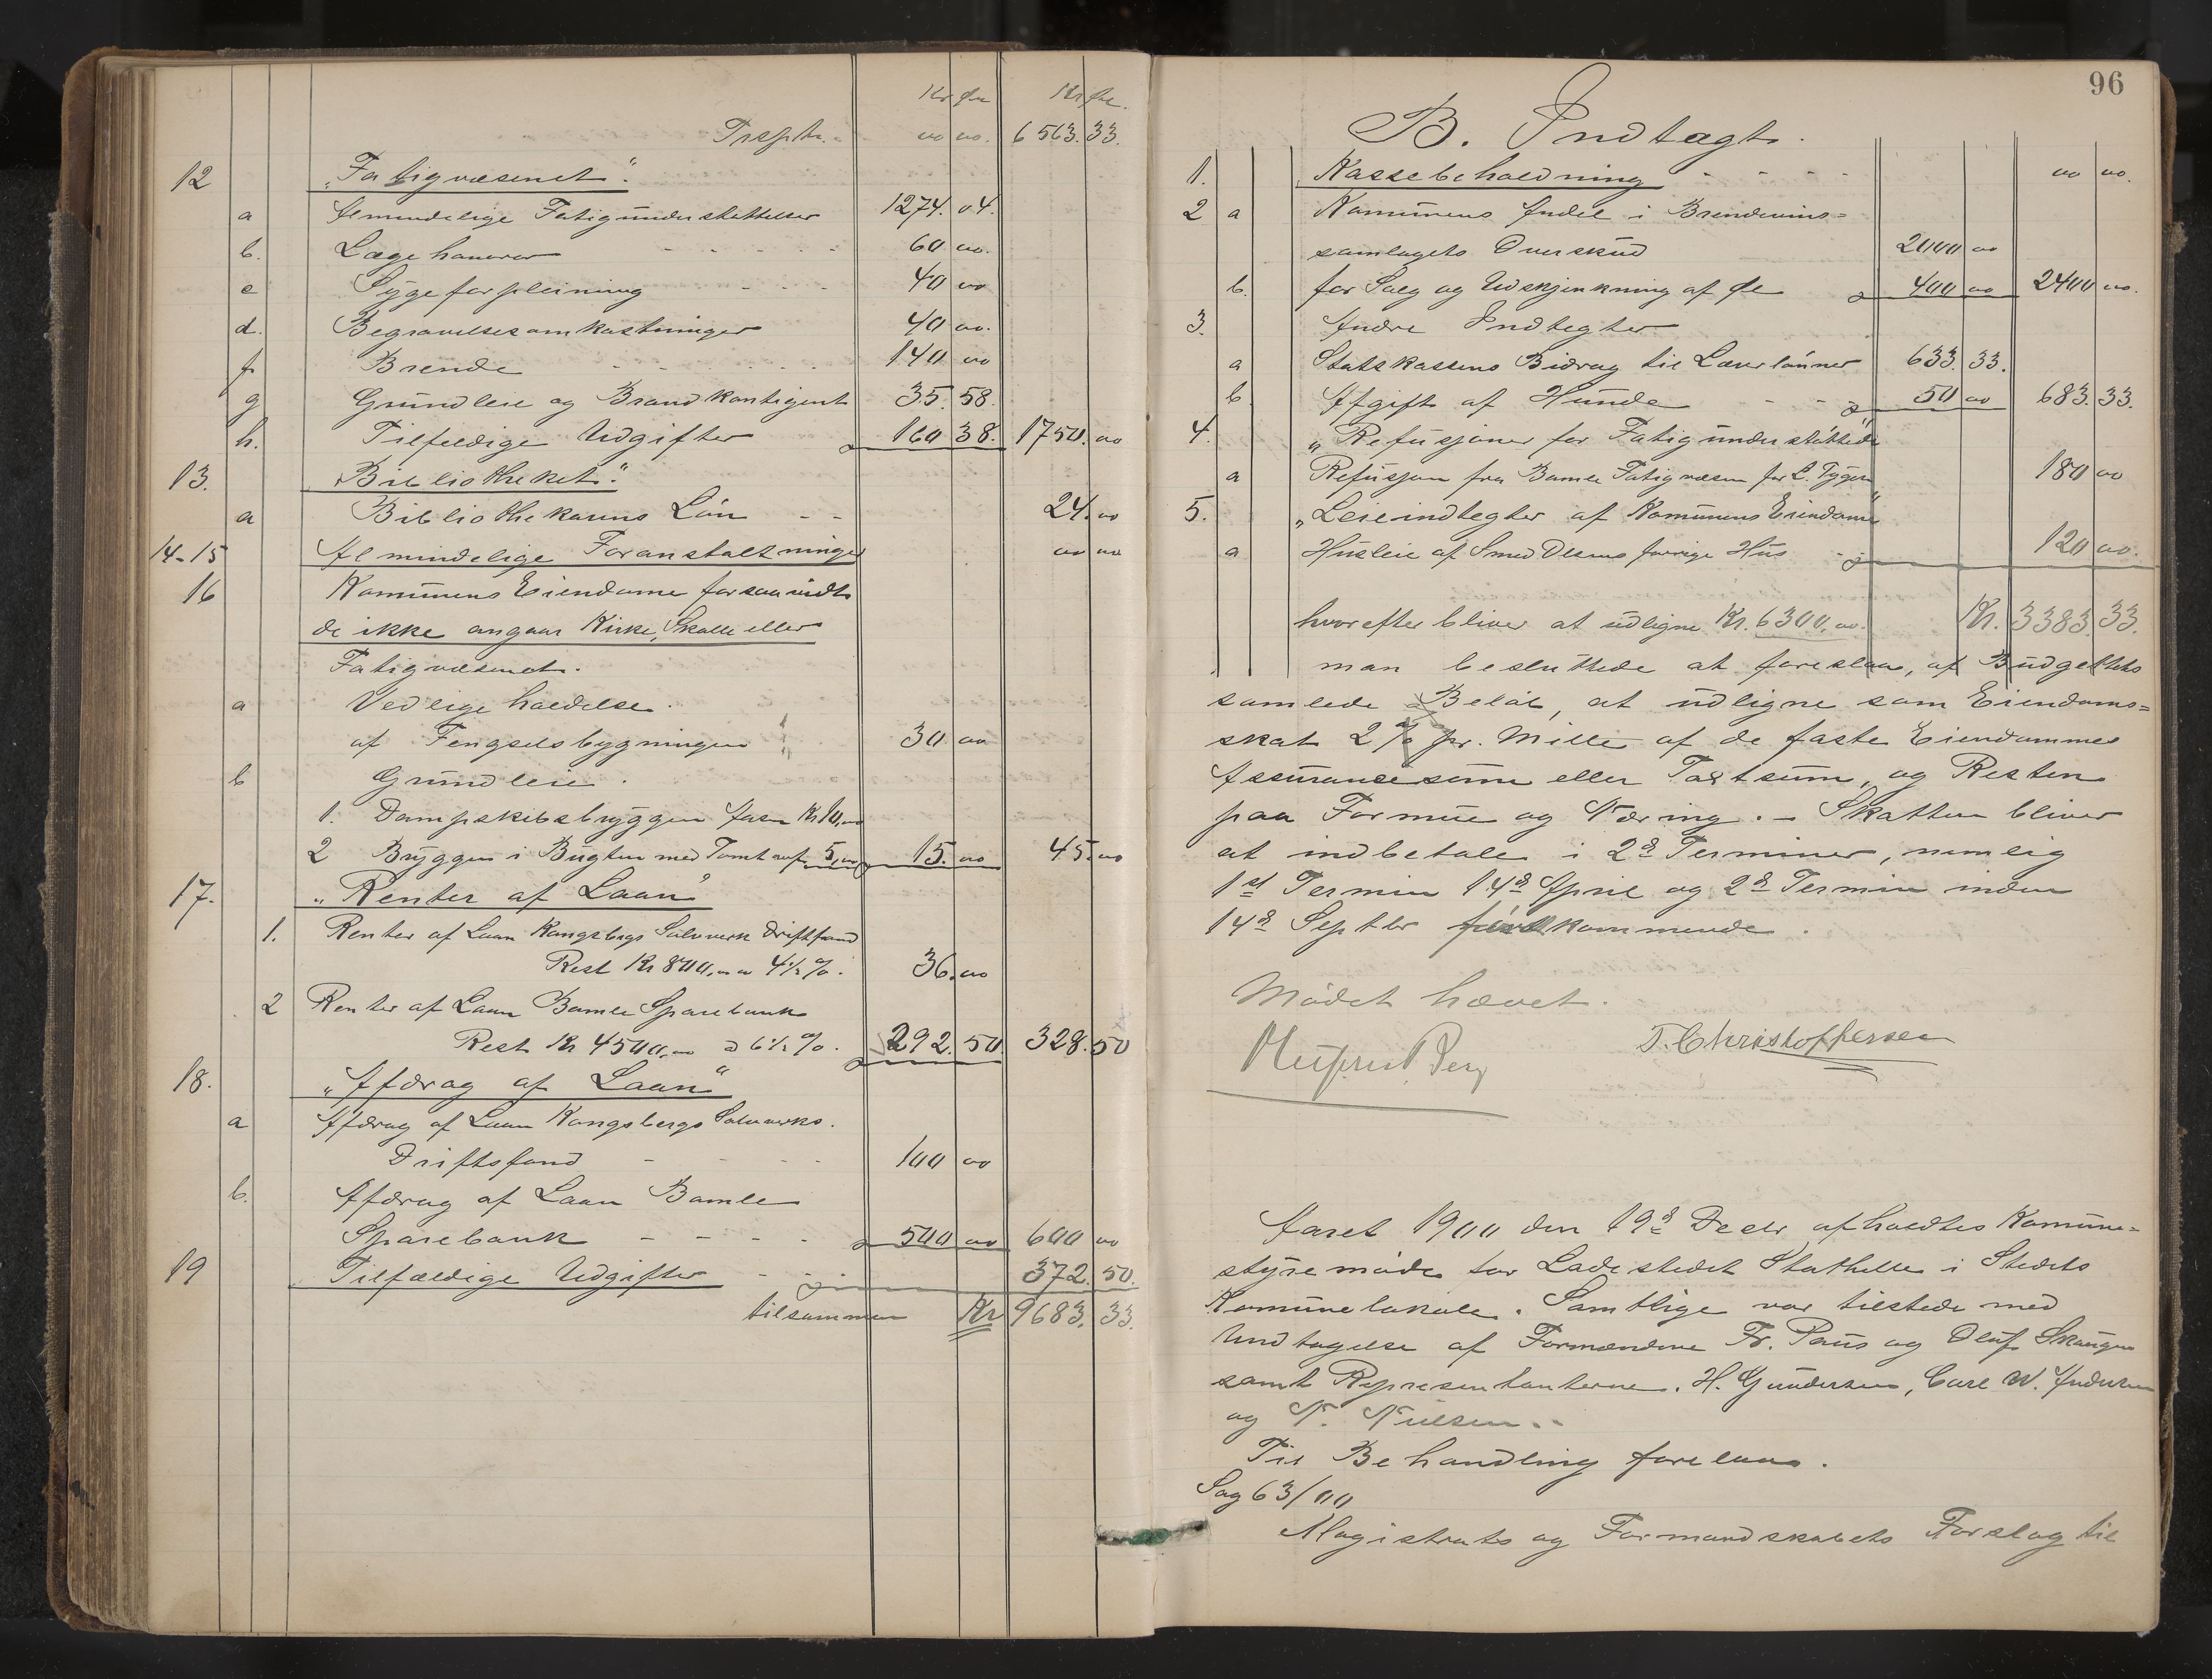 Kr Øre Kr Øre.
Trspt. oo oo. 6563. 33.
12 "Fatigvæsenet".
a Almindelige Fatigunderstøttelser 1274. 04.
b. Lægehonorar - - - - - 60 oo.
c Sygeforpleining - - - - 40 oo
d. Begravelsesomkostninger 40 oo.
f Brænde - - - - - - 140 oo
g Grundleie og Brandkontigent 35. 58.
h. Tilfeldige Udgifter 160 38. 1750. oo
13. "Bibliotheket".
a Bibliothekarens Løn - - 24. oo
14-15 Almindelige Foranstaltninger oo oo
16 Kommunens Eiendomme forsaavidt
de ikke angaar Kirke, Skole eller
Fatigvæsenet.
a Vedligeholdelse.
af Fengselsbygningen 30. oo
b Grundleie.
1. Dampskibsbryggen Aasen Kr 10,oo
2 Bryggen i Bugten med Tomt 5,oo 15. oo 45. oo
17. "Renter af Laan"
1. Renter af Laan Kongsbergs Sølvverk Driftsfond
Rest Kr 800,oo a 4½%. 36. oo
2 Renter af Laan Bamle Sparebank
Rest Kr 4500,oo a 6½%. 292. 50. 328. 50
18. "Afdrag af Laan"
a Afdrag af Laan Kongsbergs Sølvverks.
Driftsfond - - - - 100 oo
b. Afdrag af Laan Bamle
Sparebank - - - - 500 oo 600 oo
19 Tilfældige Udgifter - - - 372. 50.
tilsammen Kr 9683. 33.
96
B. Indtægt.
1. Kassebeholdning - - - - oo oo.
2 a Kommunens Andel i Brendevins=
samlagets Overskud 2000 oo
b. for Salg og Udskjenkning af Øl 400 oo 2400 oo.
3. Andre Indtegter
a Statskassens Bidrag til Lærerlønner 633. 33.
b. Afgift af Hunde - - - 50 oo 683. 33.
4. "Refusjoner for Fatigunderstøttede"
a Refusjon fra Bamle Fatigvæsen for L. 180 oo
5. "Leieindtegter af Kommunens Eiendomme"
a Husleie af Smed Olsens forrige Hus - 120 oo.
hvorefter bliver at udligne Kr. 6300,oo. Kr. 3383. 33.
man besluttede at foreslaa, af Budgettets
samlede Beløb, at udligne som Eiendoms=
skat 2 % pr. Mille af de faste Eiendommes
Assurancesum eller Taxtsum, og Resten
paa Formue og Næring. - Skatten bliver
at indbetale i 2de Terminer, nemlig
1st Termin 14de April og 2de Termin inden
14de Septbr førstkommende.
Mødet hævet.
T. Christoffersen
Aaret 1900 den 19de Decbr afholdtes Kommune=
styremøde for Ladestedet Stathelle i Stedets
Kommunelokale. Samtlige var tilstede med
Undtagelse af Formændene Fr. Paus og Oluf Skaugen
samt Representanterne. H. Gundersen, Carl W. Andersen
og N. Nielsen..
Til Behandling forelaas.
Sag 63/00
Magistrats og Formandskabets Forslag til